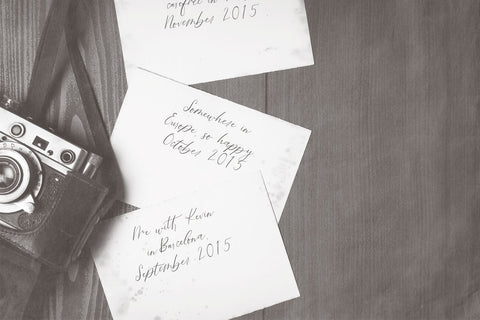 carefree in
November 2015
Somewhere in
Europe so happy
October 2015
Me with Kevin
in Barcelona,
September 2015